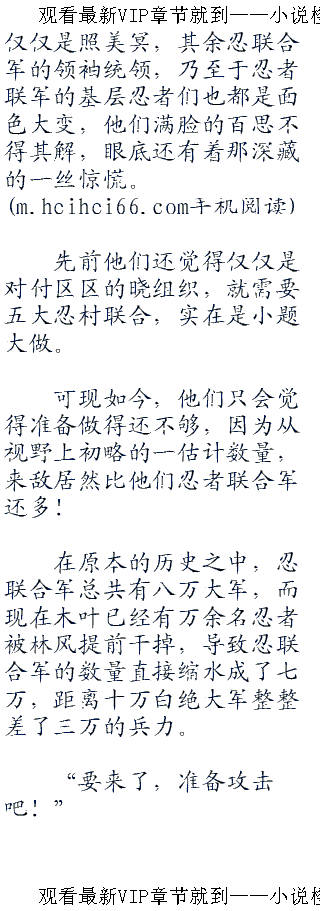 观看最新VIP章节就到——小说检
仅仅是照美冥，其余忍联合
军的领袖统领，乃至于忍者
联军的基层忍者们也都是面
色大变，他们满脸的百思不
得其解，眼底还有着那深藏
的一丝惊慌。
(m.hcihci66.com手机阅读)
先前他们还觉得仅仅是
对付区区的晓组织，就需要
五大忍村联合，实在是小题
大做。
可现如今，他们只会觉
得准备做得还不够，因为从
视野上初略的一估计数量，
来敌居然比他们忍者联合军
还多！
在原本的历史之中，忍
联合军总共有八万大军，而
现在木叶已经有万余名忍者
被林风提前干掉，导致忍联
合军的数量直接缩水成了七
万，距离十万白绝大军整整
差了三万的兵力。
“要来了，准备攻击
吧！”
观看最新VIP章节就到——小说检